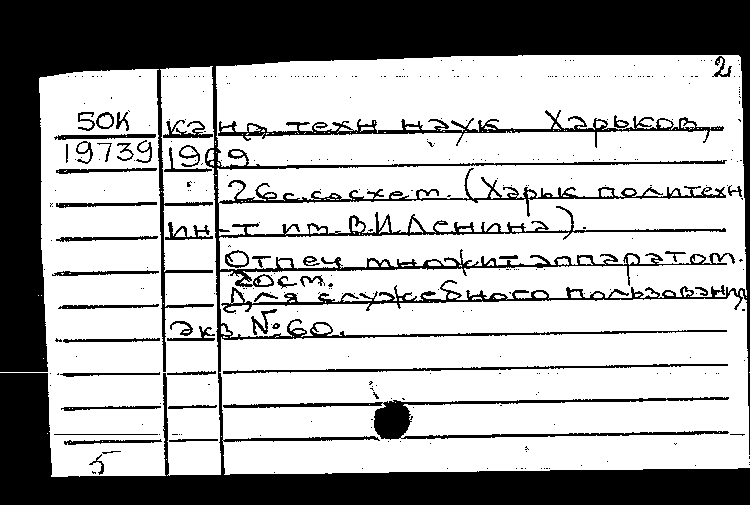 2
50К канд. техн наук Харьков,
19739 1969.
26с. со схем. (Харьк политехн
ин-т им. В.И. Ленина).
Отпеч множит аппаратом.
20см.
Для служебного пользования
экз. №60.
5